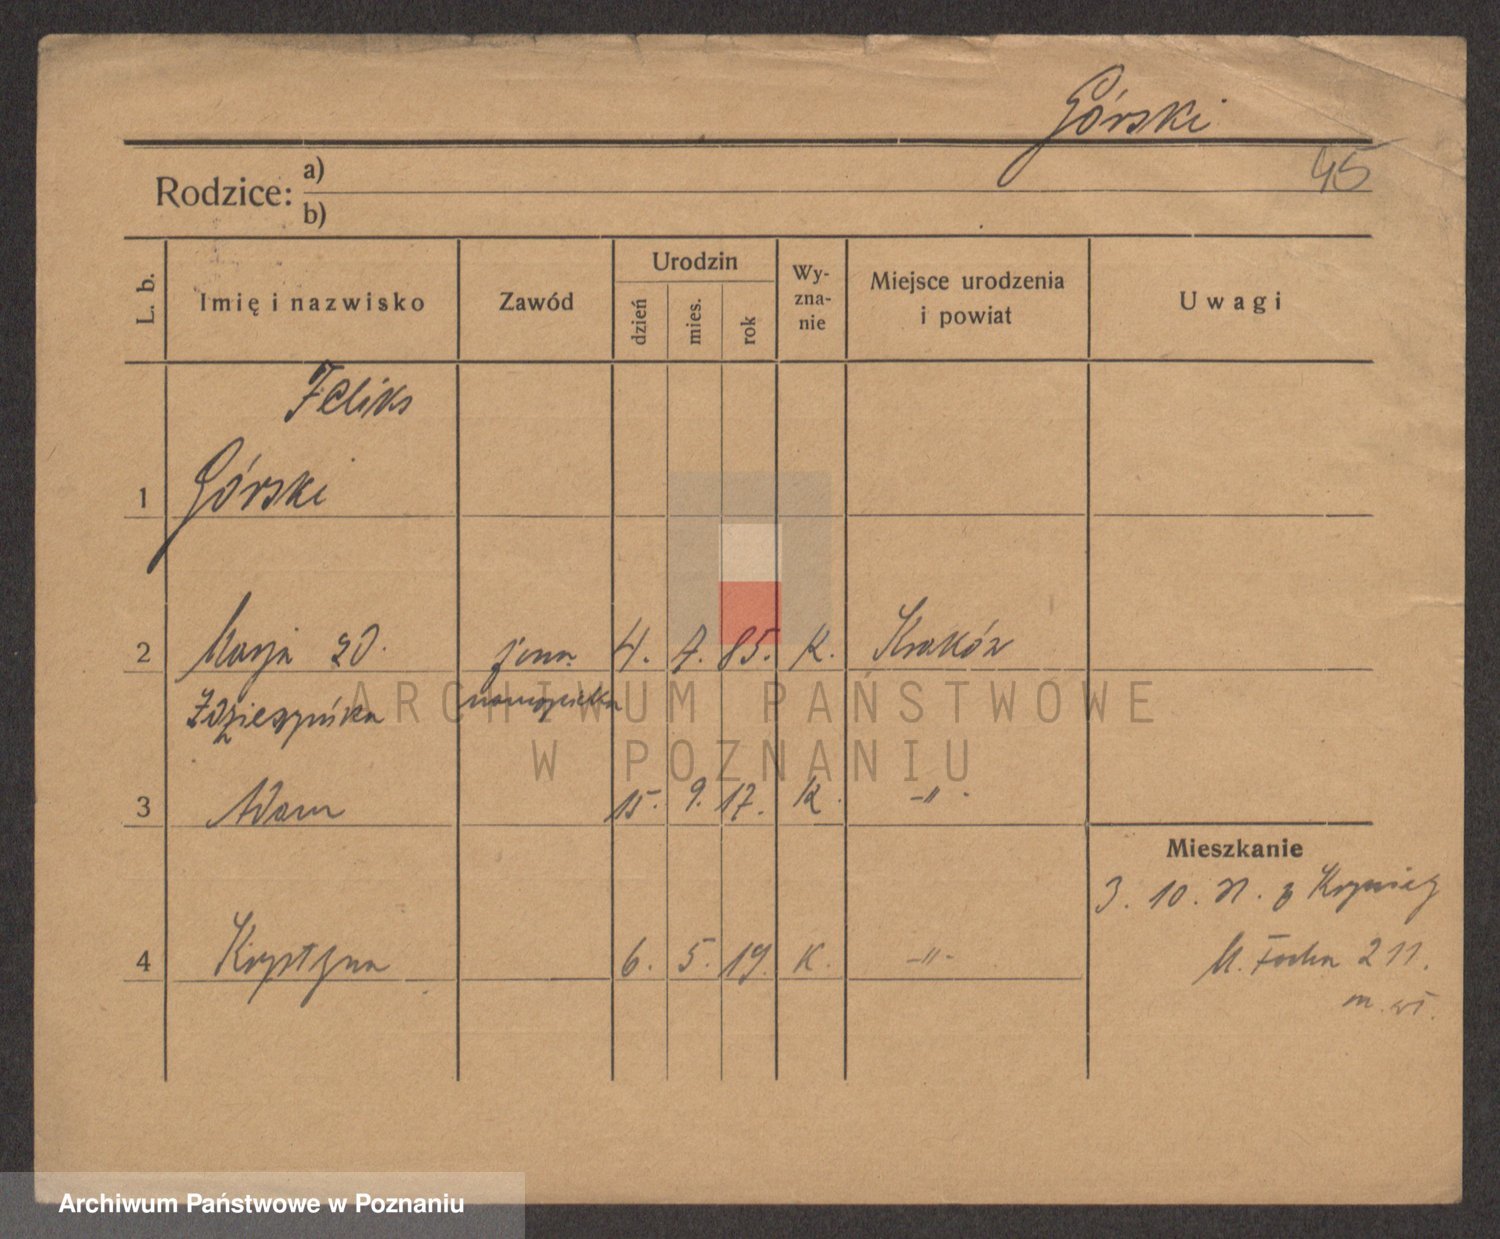 Górski
45
Rodzice: a)
b)
L. b.
Imię i nazwisko
Zawód
Urodzin
dzień
mies.
rok
Wy-
zna-
nie
Miejsce urodzenia
i powiat
Uwagi
Feliks
1 Górski
2 Marja zd. żona 4. 7. 85. K. Kraków
3 Adam 15. 9. 17. K. -"-
Mieszkanie
3. 10. z
4 Krystyna 6. 5. 19. K. -"-
M. Focha 211.
m. wł.
ARCHIWUM PAŃSTWOWE
W POZNANIU
Archiwum Państwowe w Poznaniu